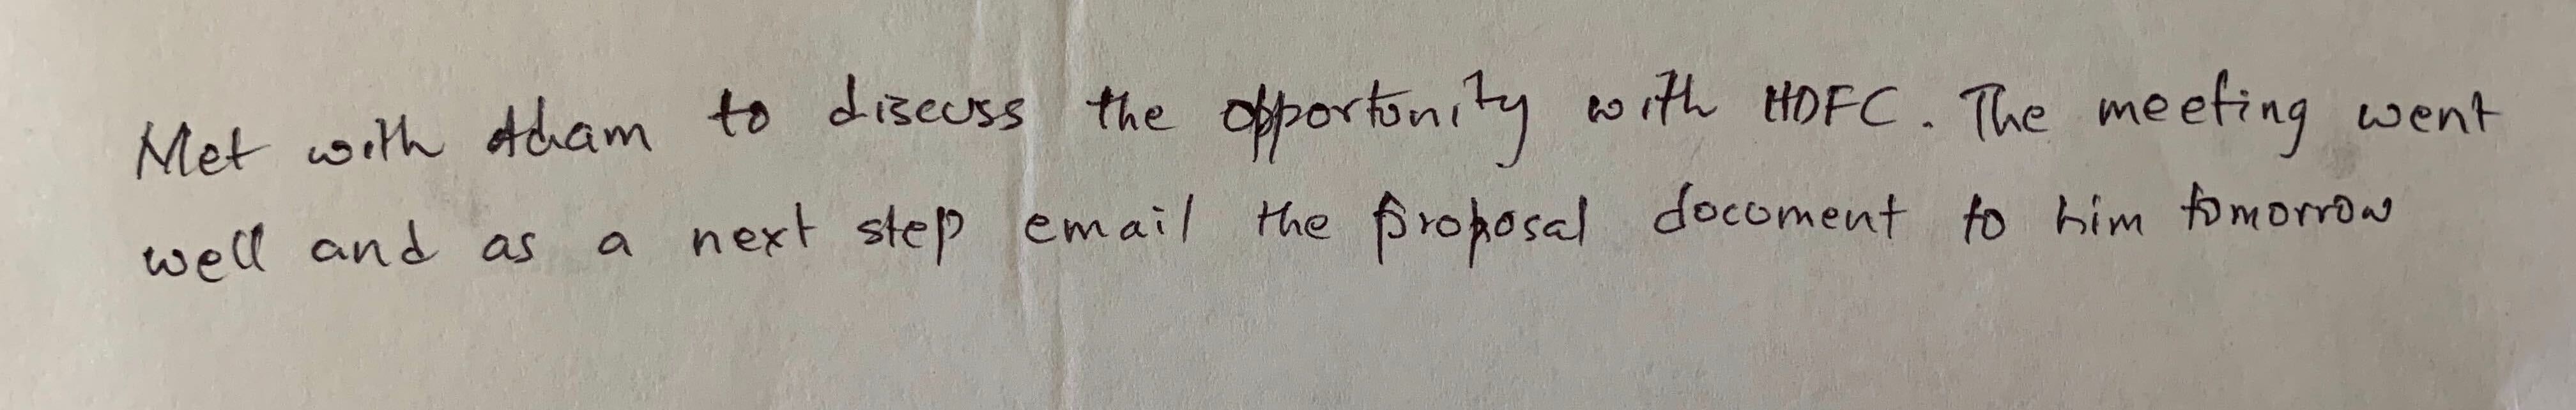 Met with Adam to discuss the opportunity with HDFC. The meeting went
well and as a next step email the proposal document to him tomorrow